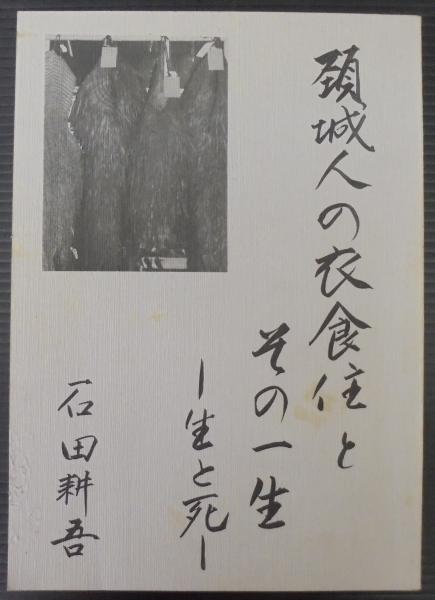 頚城人の衣食住と
その一生
ー生と死ー
石田耕吾